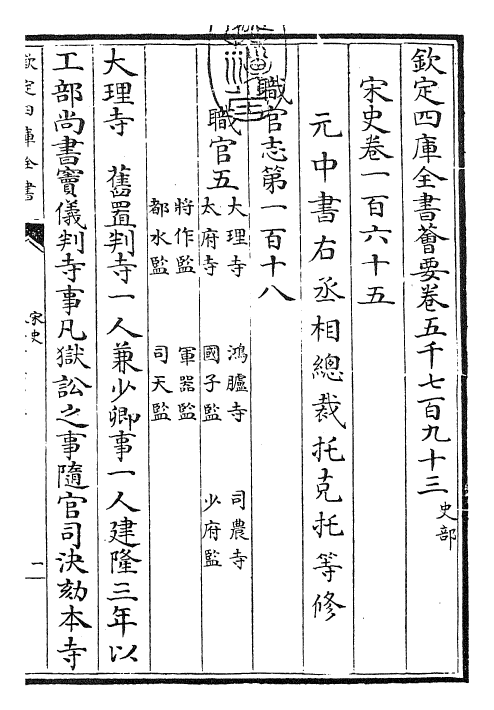 欽定四庫全書薈要卷五千七百九十三 史部
宋史卷一百六十五
元中書右丞相總裁托克托等修
職官志第一百十八
職官五
大理寺 鴻臚寺 司農寺
太府寺 國子監 少府監
將作監 軍器監
都水監 司天監
大理寺 舊置判寺一人兼少卿事一人建隆三年以
工部尚書竇儀判寺事凡獄訟之事隨官司決劾本寺
欽定四庫全書
宋史
一